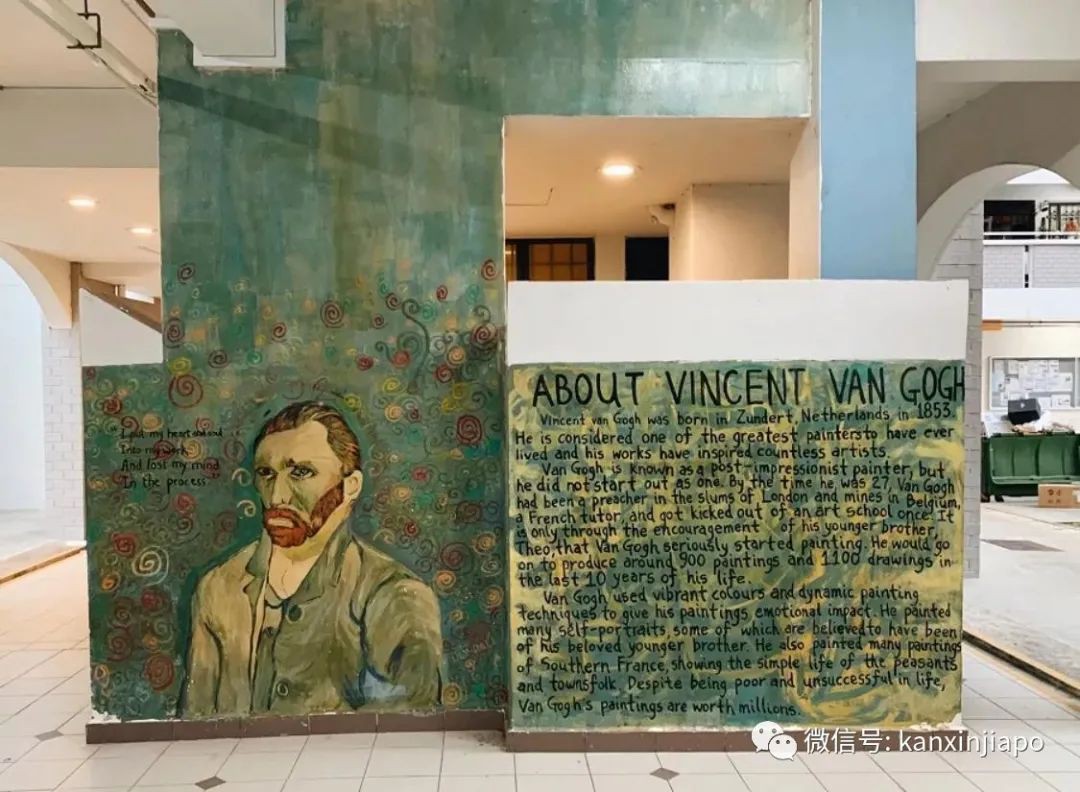 "I put my heart and soul
Into my work,
And lost my mind
In the process"
ABOUT VINCENT VAN GOGH
Vincent van Gogh was born in Zundert, Netherlands in 1853.
He is considered one of the greatest painters to have ever
lived and his works have inspired countless artists.
Van Gogh is known as a post-impressionist painter, but
he did not start out as one. By the time he was 27, Van Gogh
had been a preacher in the slums of London and mines in Belgium,
a French tutor, and got kicked out of an art school once. It
is only through the encouragement of his younger brother,
Theo, that Van Gogh seriously started painting. He would go
on to produce around 900 paintings and 1100 drawings in
the last 10 years of his life.
Van Gogh used vibrant colours and dynamic painting
techniques to give his paintings emotional impact. He painted
many self-portraits, some of which are believed to have been
of his beloved younger brother. He also painted many paintings
of Southern France, showing the simple life of the peasants
and townsfolk. Despite being poor and unsuccessful in life,
Van Gogh's paintings are worth millions.
微信号: kanxinjiapo